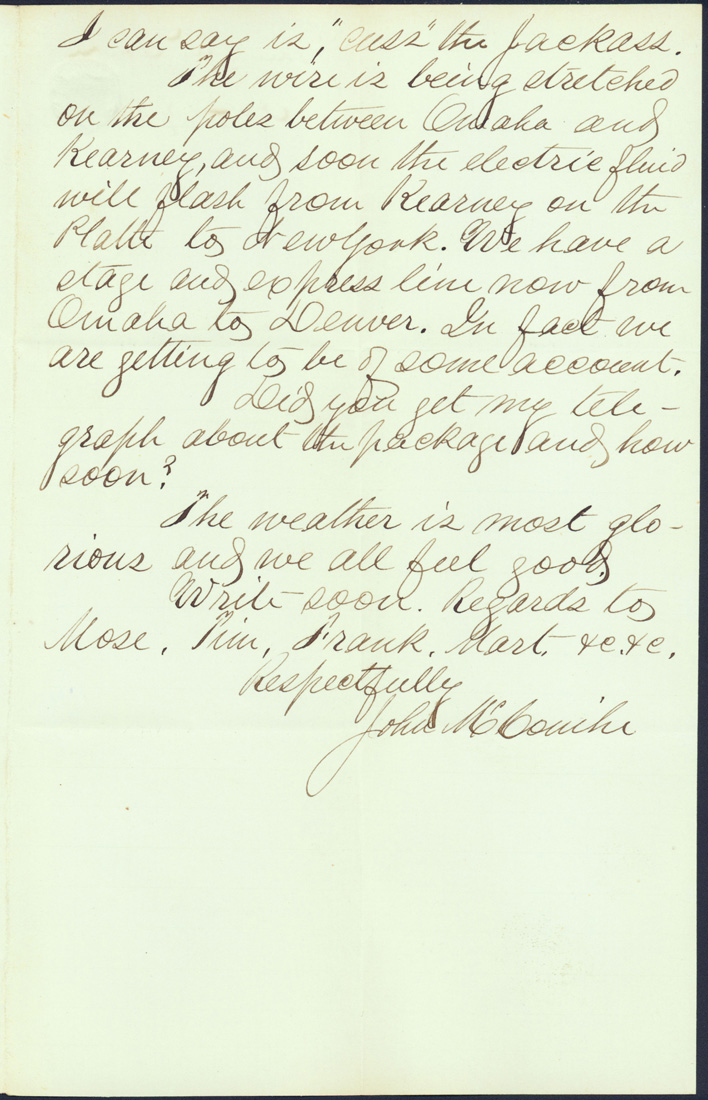 I can say is, "cuss" the Jackass.
The wire is being stretched
on the poles between Omaha and
Kearney, and soon the electric fluid
will flash from Kearney on the
Platte to New York. We have a
stage and express line now from
Omaha to Denver. In fact we
are getting to be of some account.
Did you get my tele-
graph about the package and how
soon?
The weather is most glo-
rious and we all feel good.
Write soon. Regards to
Mose, Tim, Frank, Mart. &c. &c.
Respectfully
John McConihe